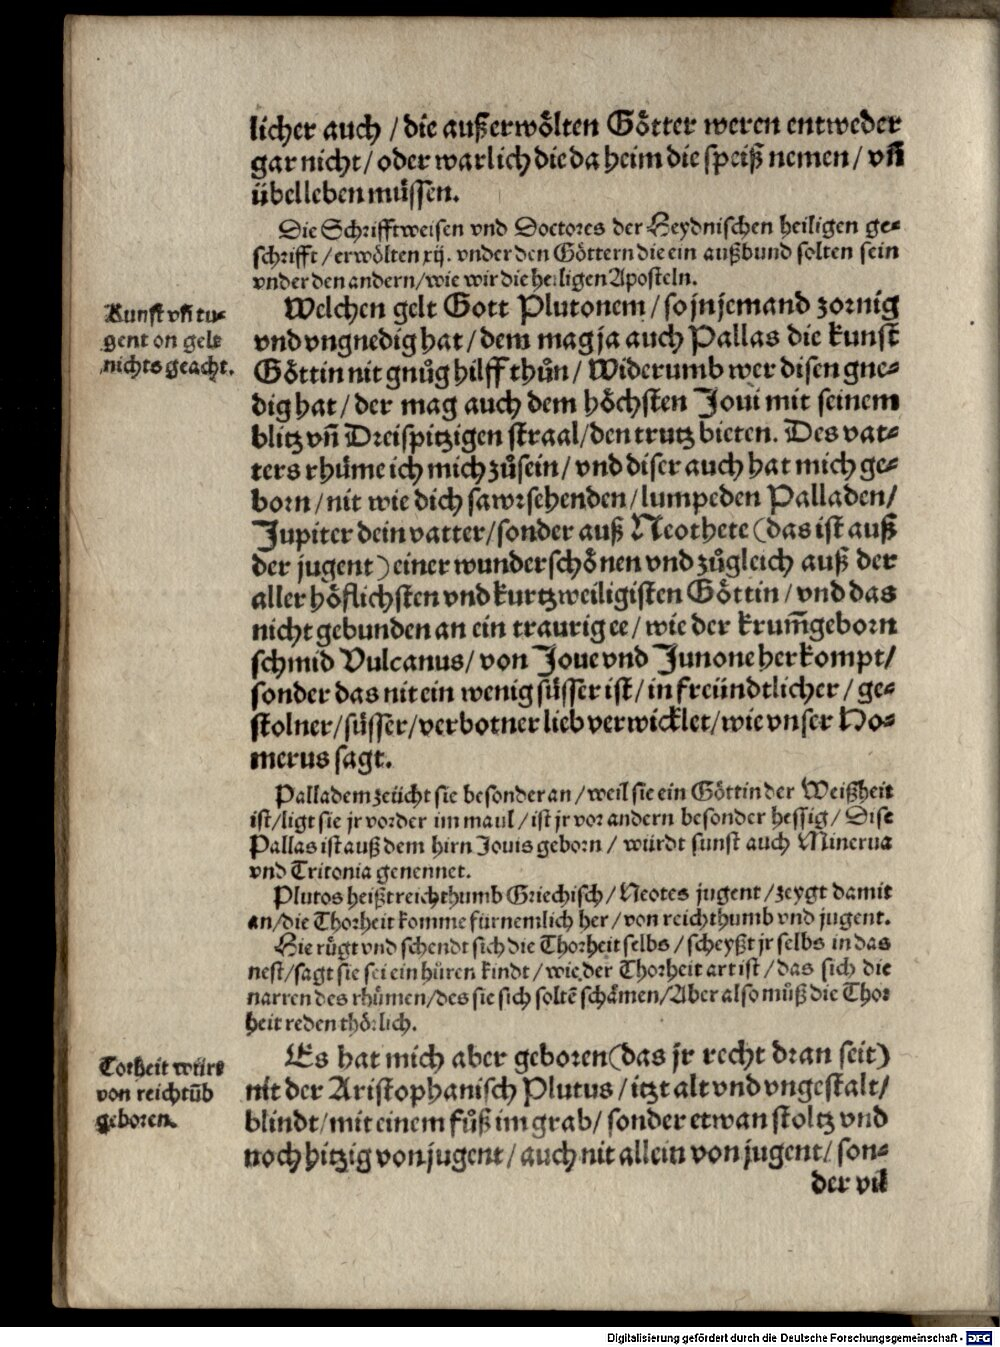 licher auch / die außerwoͤlten Goͤtter weren entweder
gar nicht / oder warlich die da heim die speiß nemen / vñ
uͤbel leben muͤssen.
Die Schrifftweisen vnd Doctores der Heydnischen heiligen ge⸗
schrifft / erwoͤlten xij. vnder den Goͤttern die ein außbund solten sein
vnder den andern / wie wir die heiligen Aposteln.
Kunst vñ tu⸗
gent on gelt
nichts geacht.
Welchen gelt Gott Plutonem / so jn jemand zornig
vnd vngnedig hat / dem mag ja auch Pallas die kunst
Goͤttin nit gnuͦg hilff thuͦn / Widerumb wer disen gne⸗
dig hat / der mag auch dem hoͤchsten Joui mit seinem
blitz vñ Dreispitzigen straal / den trutz bieten. Des vat⸗
ters rhuͤme ich mich zuͦ sein / vnd diser auch hat mich ge⸗
born / nit wie dich sawrsehenden / lumpeden Palladen /
Jupiter dein vatter / sonder auß Neothete (das ist auß
der jugent) einer wunder schoͤnen vnd zuͦgleich auß der
aller hoͤflichsten vnd kurtzweiligisten Goͤttin / vnd das
nicht gebunden an ein traurig ee / wie der krum̃geborn
schmid Vulcanus / von Joue vnd Junone her kompt /
sonder das nit ein wenig suͤsser ist / in freuͤndtlicher / ge⸗
stolner / suͤsser / verbotner lieb verwicklet / wie vnser Ho⸗
merus sagt.
Palladem zeücht sie besonder an / weil sie ein Goͤttin der Weißheit
ist / ligt sie jr vorder im maul / ist jr vor andern besonder hessig / Dise
Pallas ist auß dem hirn Jouis geborn / würdt sunst auch Minerua
vnd Tritonia genennet.
Plutos heißt reichthumb Griechisch / Neotes jugent / zeygt damit
an / die Thorheit komme fürnemlich her / von reichthumb vnd jugent.
Hie ruͤgt vnd schendt sich die Thorheit selbs / scheyßt jr selbs in das
nest / sagt sie sei ein huͤren kindt / wie der Thorheit art ist / das sich die
narren des rhuͤmen / des sie sich soltē schaͤmen / Aber also muͦß die Thor
heit reden thoͤrlich.
Torheit würt
von reichtūb
geboren.
Es hat mich aber geboren (das jr recht dran seit)
nit der Aristophanisch Plutus / itzt alt vnd vngestalt /
blindt / mit einem fuͦß im grab / sonder etwan stoltz vnd
noch hitzig von jugent / auch nit allein von jugent / son⸗
der vil
Digitalisierung gefördert durch die Deutsche Forschungsgemeinschaft - DFG